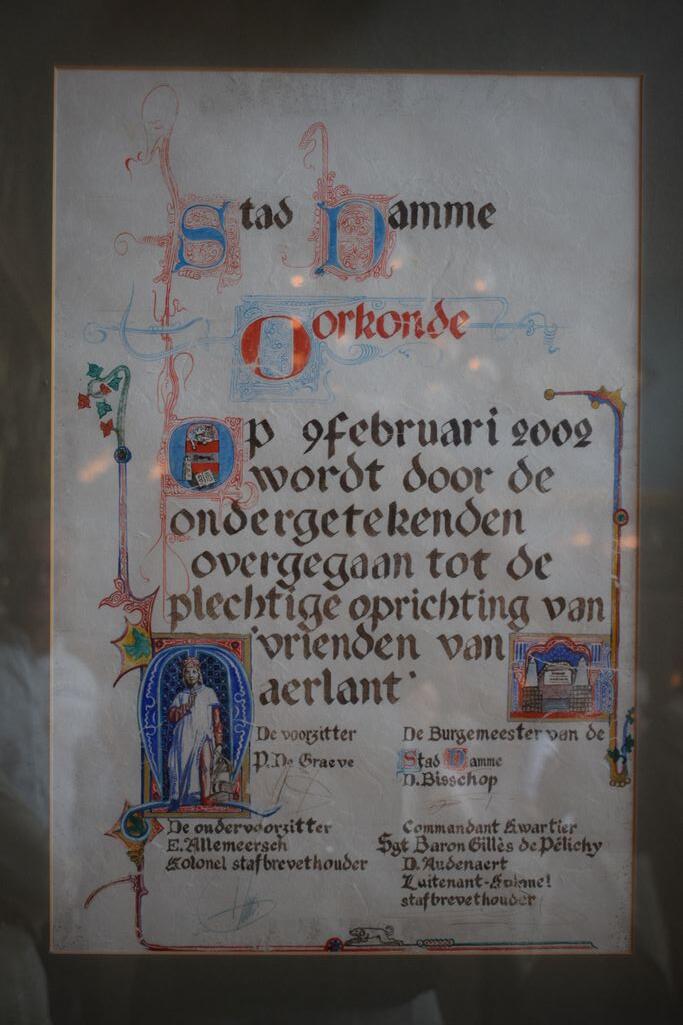 Stad Damme
Oorkonde
Op 9 februari 2002
wordt door de
ondergetekenden
overgegaan tot de
plechtige oprichting van
'vrienden van
Maerlant'
De voorzitter
P. De Graeve
De Burgemeester van de
Stad Damme
D. Bisschop
De ondervoorzitter
E. Allemeersch
Kolonel stafbrevethouder
Commandant Kwartier
Sgt Baron Gillès de Pélichy
D. Audenaert
Luitenant-Kolonel
stafbrevethouder